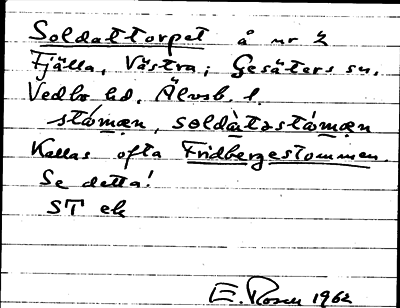 Soldattorpet å nr 2
Fjälla, Västra; Gesäters sn.
Vedbo hd. Älvsb. l.
stómæn, sɷldàtəstómæn
Kallas ofta Fridbergestommen.
Se detta!
ST ek
E. Rosen 1962